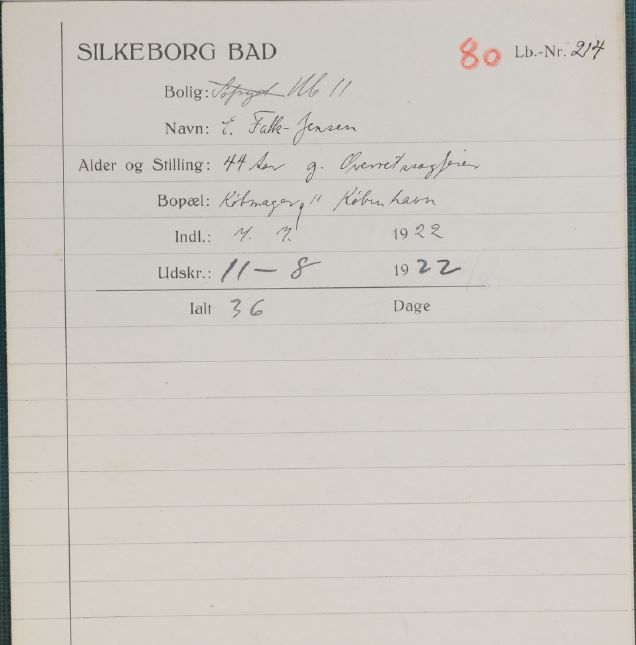 SILKEBORG BAD 80 Lb.-Nr. 214
Bolig: Ub 11
Navn: E. Falk-Jensen
Alder og Stilling: 44 Aar g. Overretssagfører
Bopæl: Købmagerg 11 København
Indl.: 7. 7. 1922
Udskr.: 11-8 1922
Ialt 36 Dage